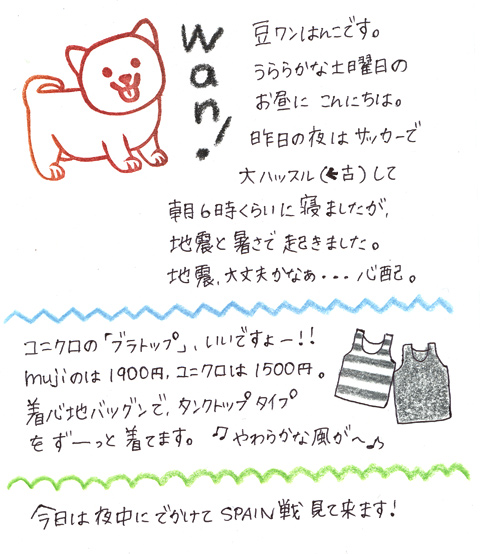 wan!
豆ワンはんこです。
うららかな土曜日の
お昼に こんにちは。
昨日の夜は サッカーで
大ハッスル(←古)して
朝6時くらいに寝ましたが、
地震と暑さで起きました。
地震、大丈夫かなぁ・・・心配。
ユニクロの「ブラトップ」、いいですよー!!
mujiのは1900円、ユニクロは1500円。
着心地バツグンで、タンクトップタイプ
をずーっと着てます。♫やわらかな風が〜♪
今日は夜中にでかけてSPAIN戦見て来ます!